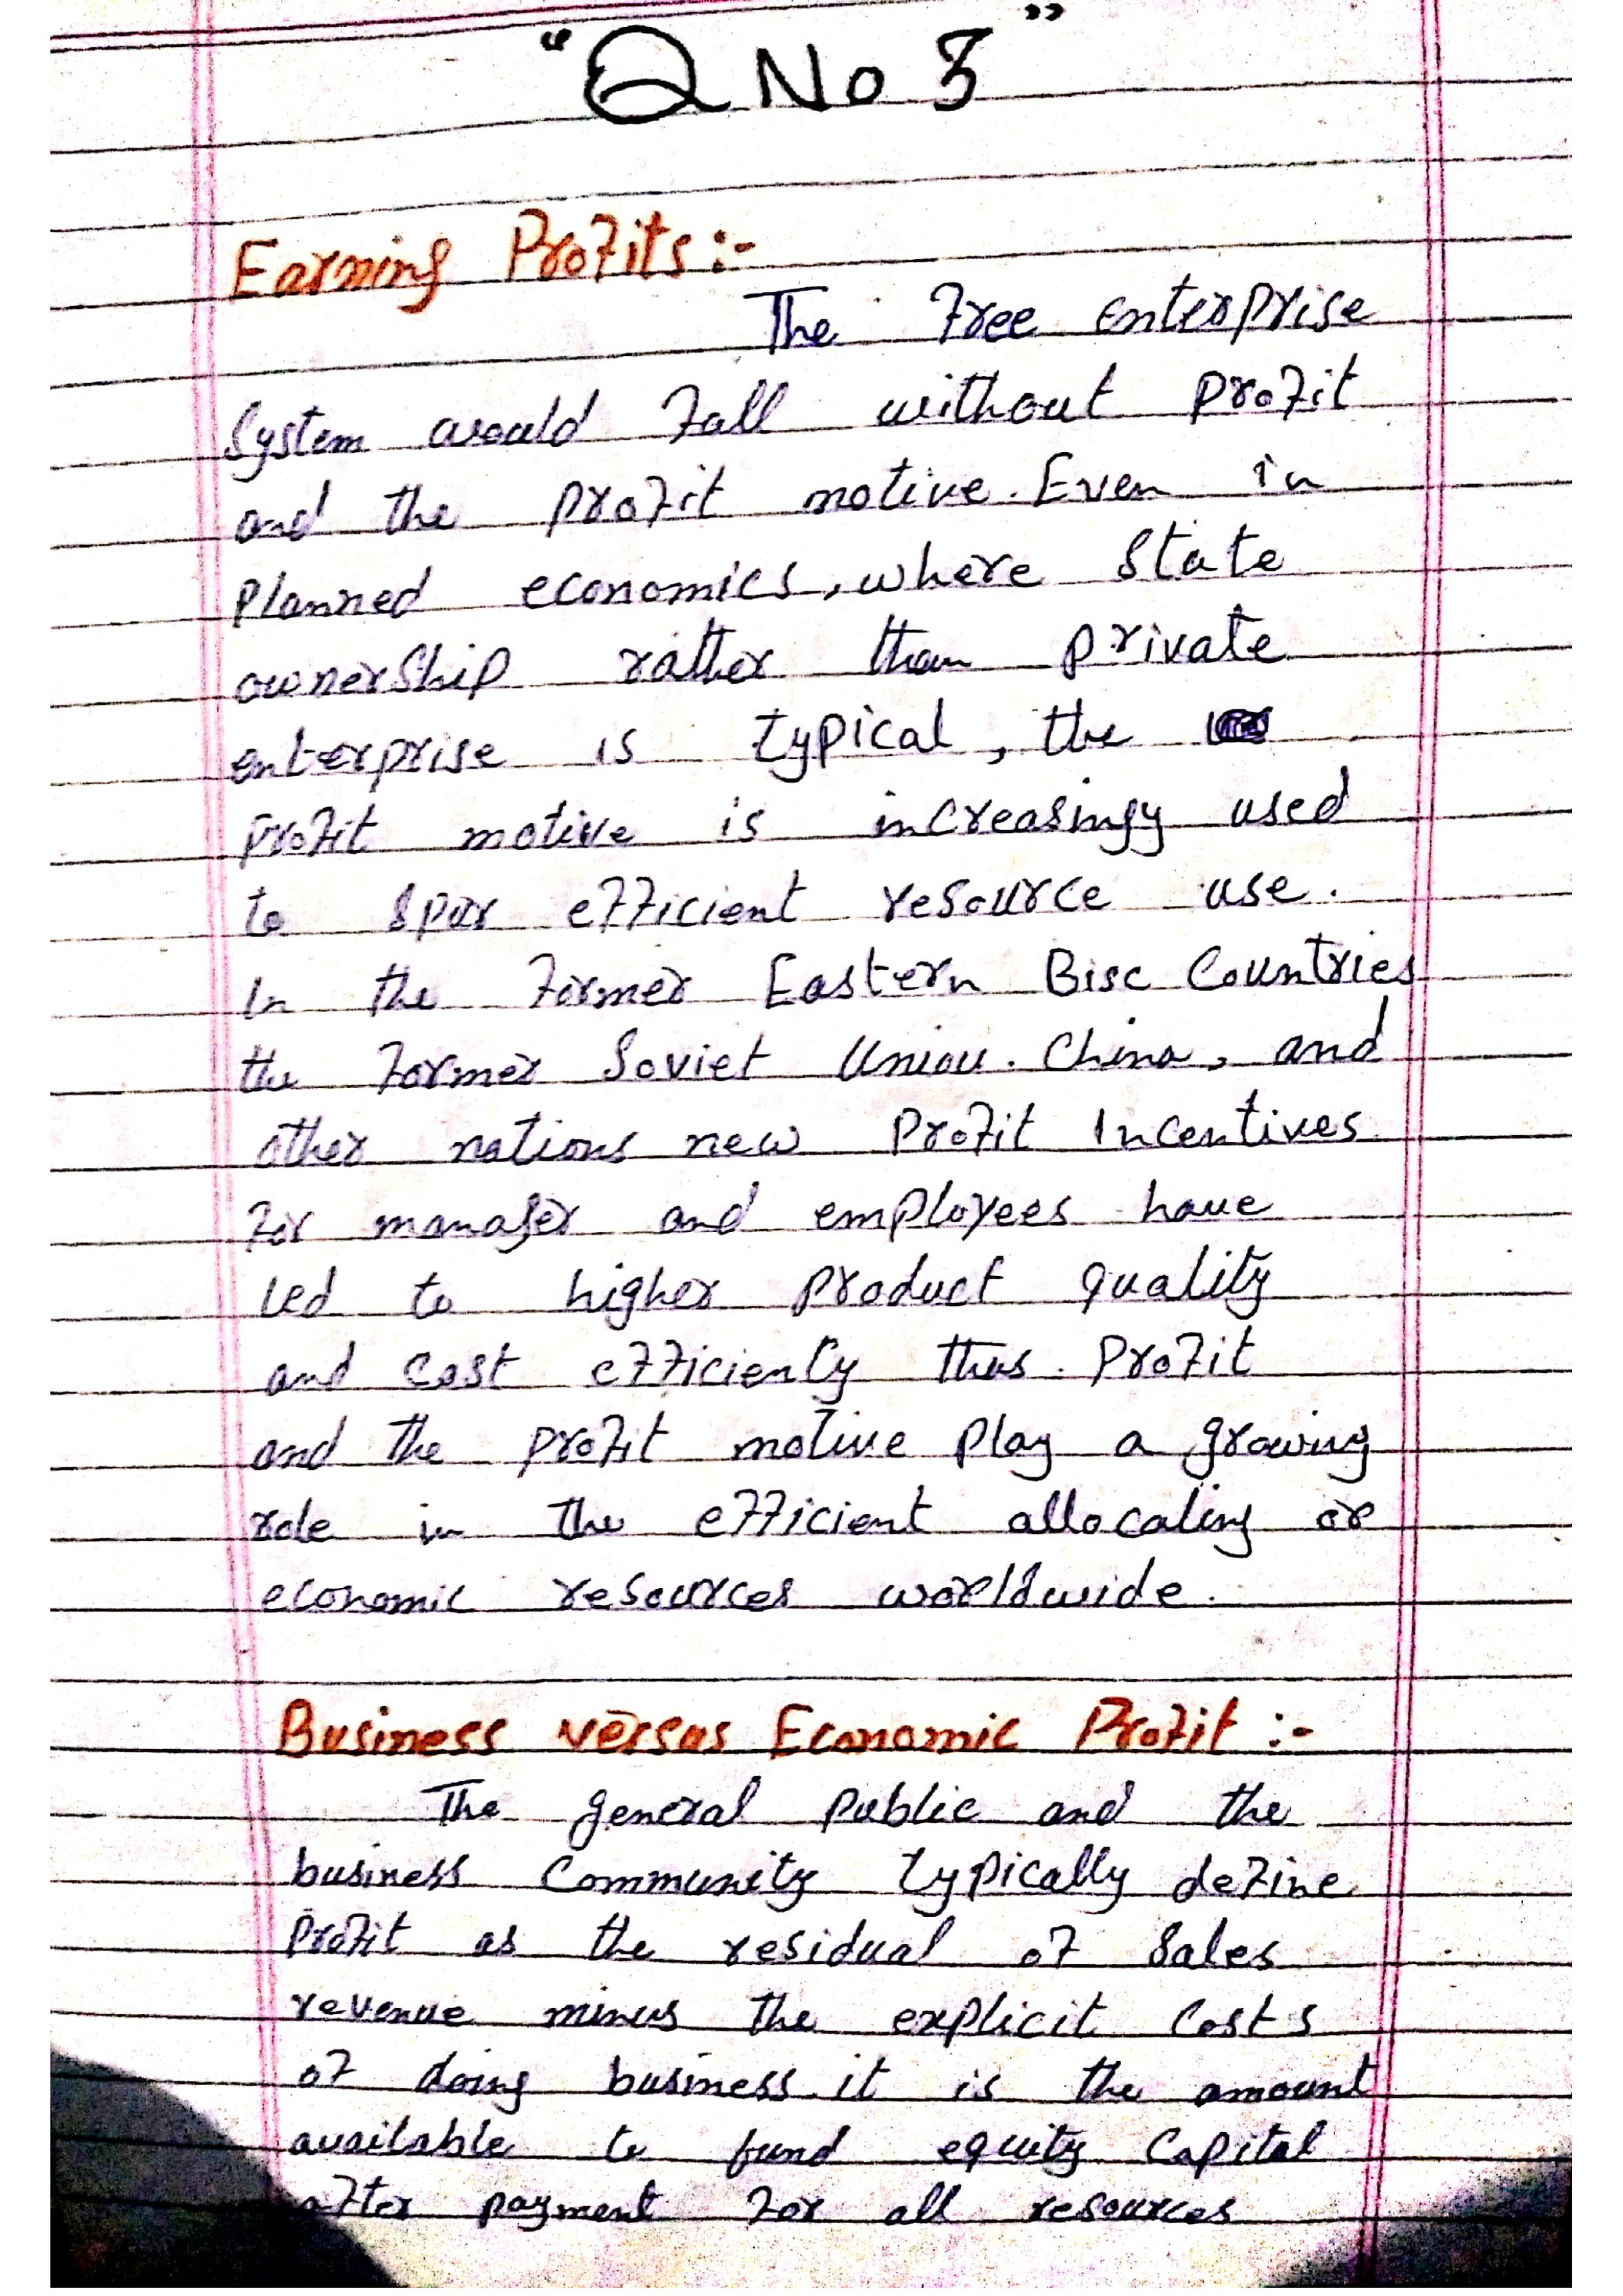 "Q No 3"
Earning Profits:-
The free enterprise
System would fall without profit
and the profit motive. Even in
planned economics, where State
ownerShip rather than private
enterprise is typical, the
profit motive is increasingy used
to spur efficient resource use.
In the former Eastern Bisc Countries
the former Soviet Union. China, and
other nations new Profit Incentives
for manager and employees have
led to higher product quality
and cost efficiency thus. Profit
and the profit motive play a growing
role in the efficient allocating or
economic resources worldwide.
Business versus Economic Profit :-
The general public and the
business Community typically define
Profit as the residual of Sales
revenue minus the explicit Costs
of doing business. it is the amount
available to fund equity Capital
after payment for all resources